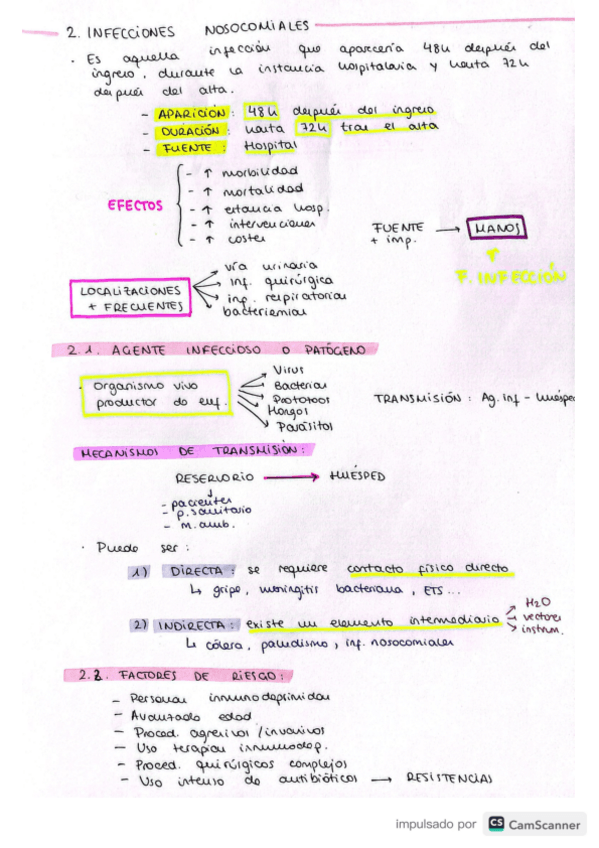 2. INFECCIONES NOSOCOMIALES
· Es aquella infección que aparecería 48h después del
ingreso, durante la instancia hospitalaria y hasta 72h
después del alta.
- APARICIÓN: 48h después del ingreso
- DURACIÓN: hasta 72h tras el alta
- FUENTE: Hospital
EFECTOS
- ↑ morbilidad
- ↑ mortalidad
- ↑ estancia hosp.
- ↑ intervenciones
- ↑ costes
FUENTE + imp. → MANOS
↑
F. INFECCIÓN
LOCALIZACIONES
+ FRECUENTES
vía urinaria
inf. quirúrgica
inf. respiratorias
bacteriemias
2.1. AGENTE INFECCIOSO O PATÓGENO
· Organismo vivo
productor de enf.
Virus
Bacterias
Protozoos
Hongos
Parásitos
TRANSMISIÓN: Ag. Inf - Huéspe
MECANISMOS DE TRANSMISIÓN:
RESERVORIO → HUÉSPED
- pacientes
- p. sanitario
- m. amb.
· Puede ser:
1) DIRECTA: se requiere contacto físico directo
↳ gripe, meningitis bacteriana, ETS...
2) INDIRECTA: existe un elemento intermediario
H2O
vectores
instrum.
↳ cólera, paludismo, inf. nosocomiales
2.2. FACTORES DE RIESGO:
- Personas inmunodeprimidas
- Avanzada edad
- Proced. agresivos/invasivos
- Uso terapias inmunodep.
- Proced. quirúrgicos complejos
- Uso intenso de antibióticos → RESISTENCIAS
impulsado por CS CamScanner